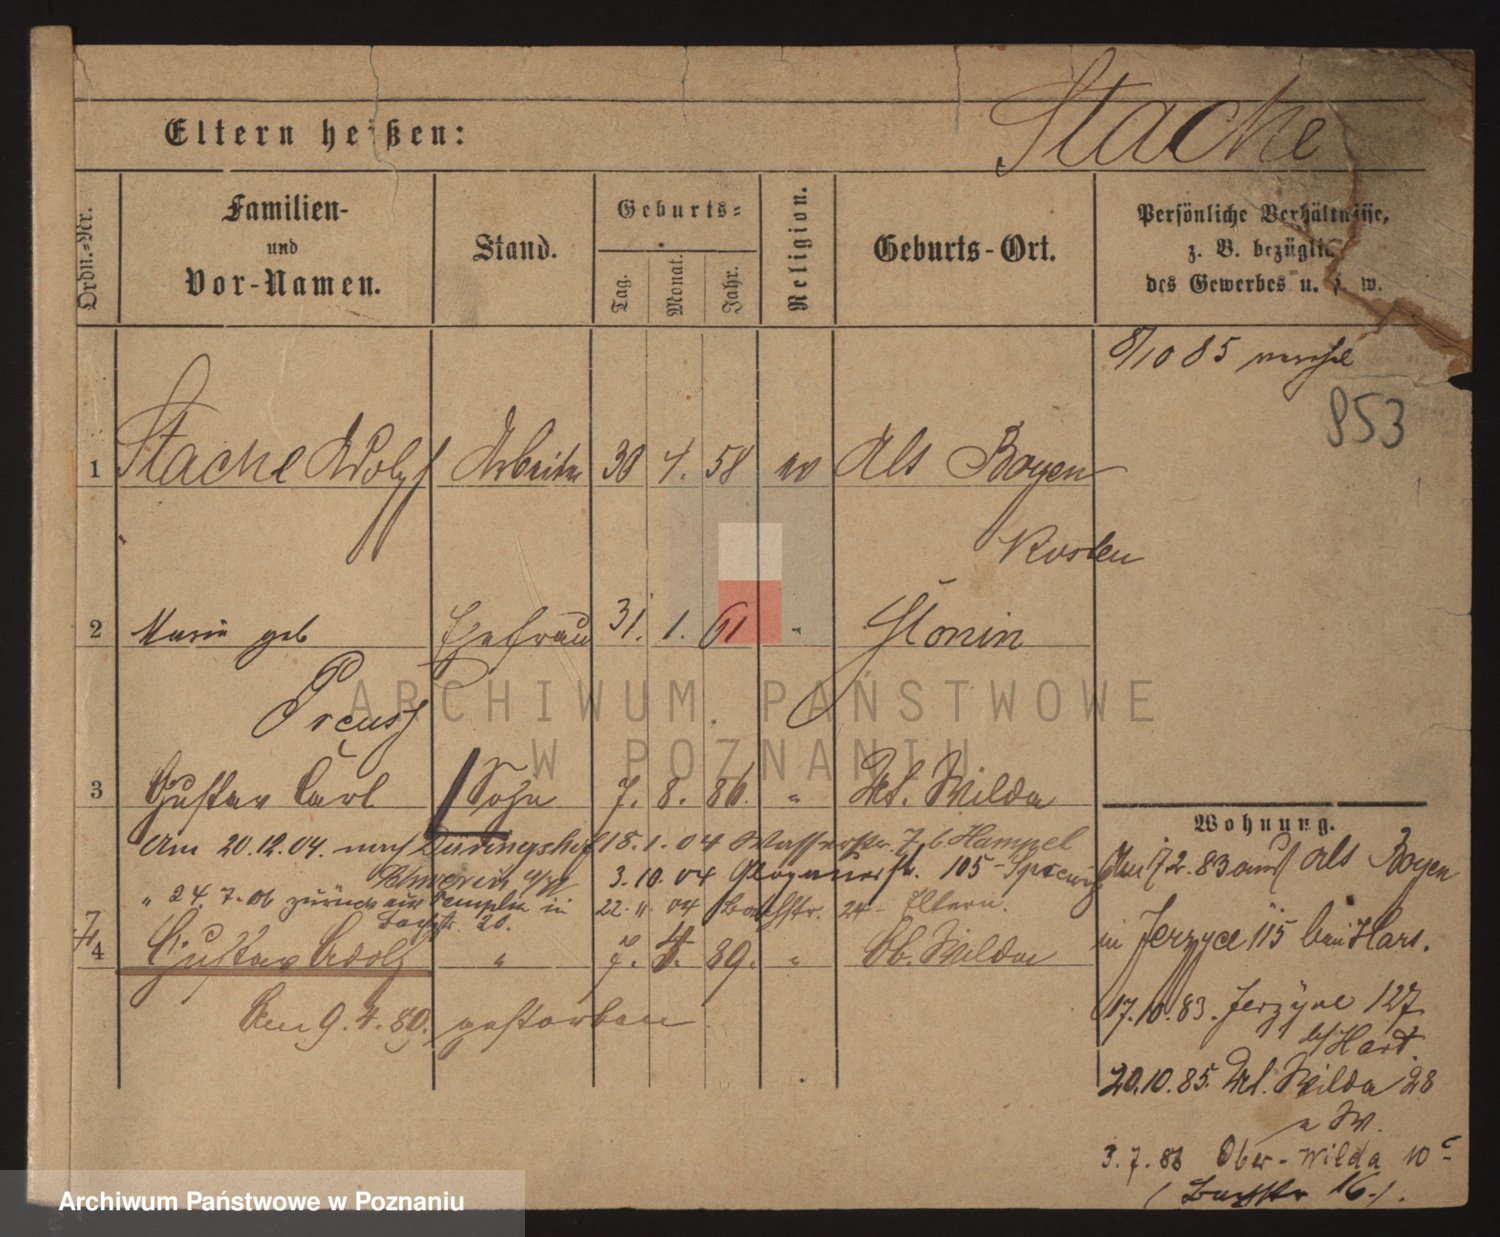 Stache
Eltern heißen:
Ordn.-Nr.
Familien-
und
Vor-Namen.
Stand.
Geburts-
Tag.
Monat.
Jahr.
Religion.
Geburts-Ort.
Persönliche Verhältnisse,
z. B. bezüglich
des Gewerbes u. s. w.
8/10 85
953
1 Stache Adolf Arbeiter 30 4. 58 ev Alt Boyen
Kosten
2 Marie geb Ehefrau 31. 1. 61 " Slonin
Preuss
3 Gustav Carl Sohn 7. 8. 86. " Ut. Wilda
Am 20.12.04. nach 18.1.04 Wasserstr. 7 b Hampel
Schwerin 3.10.04 Glogauerstr. 105 -
" 24.7.06 zurück aus Templin in 22.11.04 Bachstr. 24 - Eltern.
Bachstr. 20.
4 Gustav Adolf " 7. 4. 89. " Ob. Wilda
Am 9.4.89. gestorben
Wohnung.
83 aus Alt Boyen
in Jerzyce 115 bei Hart.
17.10.83. Jerzyce 127
b/Hart.
20.10.85. Ut. Wilda 28
3.7.86 Ober-Wilda 10c
(Bachstr 16.).
ARCHIWUM PAŃSTWOWE
W POZNANIU
Archiwum Państwowe w Poznaniu